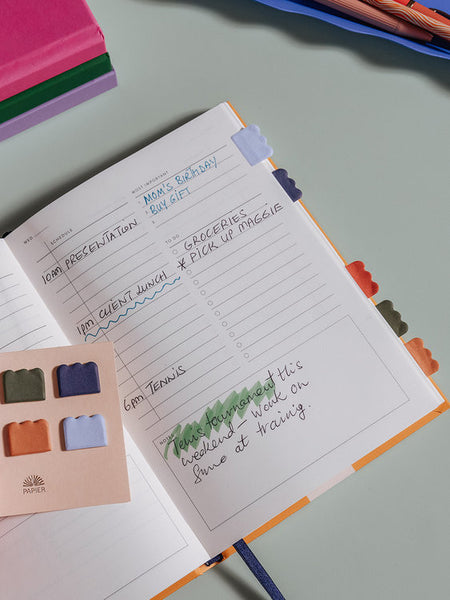 WED
SCHEDULE
10AM PRESENTATION
1pm CLIENT LUNCH
6pm TENNIS
MOST IMPORTANT
MOM'S BIRTHDAY
- BUY GIFT
TO DO
GROCERIES
* PICK UP MAGGIE
NOTES
Tennis tournament this
weekend - work on
at training.
PAPIER